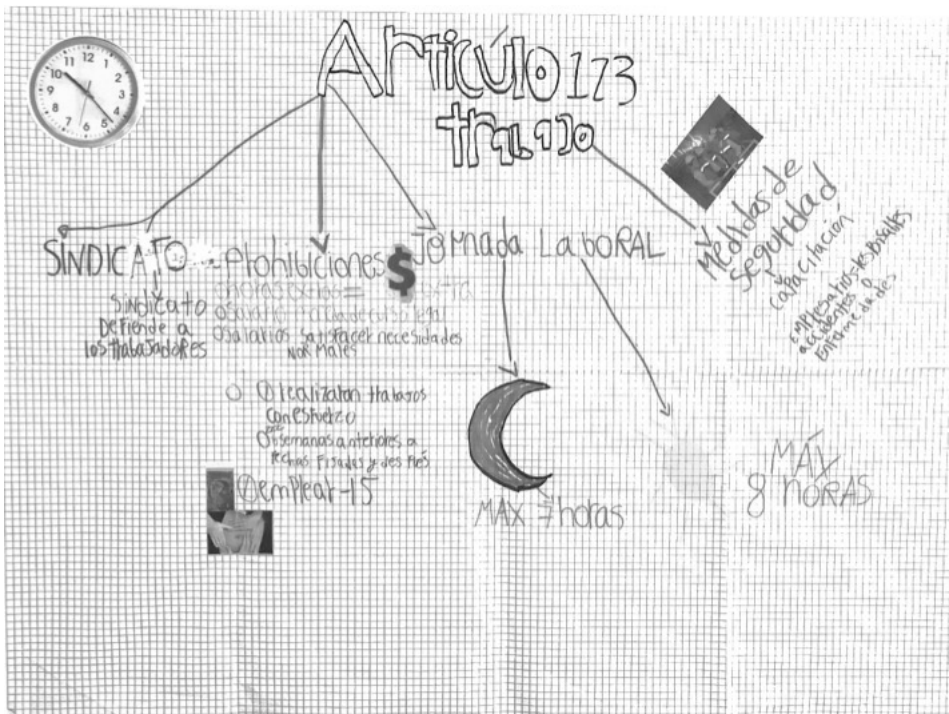 Artículo 173
trabajo
SINDICATO
sindicato
DEFIENDE a
los trabajadores
-Prohibiciones
horas extras =
salario
salarios satisfacer necesidades
NORMALES
realizaran trabajos
con esfuerzo
semanas anteriores a
fechas fisadas y des Pués
emplear -15
$
Jornada LABORAL
MAX 7 horas
MÁX
8 HORAS
Medidas de
seguridad
capacitación
empresarios-res Posables
accidentes o
Enfermedades
12
1
2
3
4
5
6
7
8
9
10
11